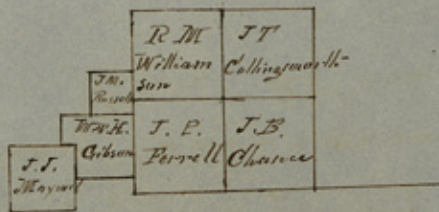 R M
William
son
J T
Collingsworth
J. M.
Russell
Wm. H.
Gibson
J. P.
Ferrell
J. B.
Chance
J. J.